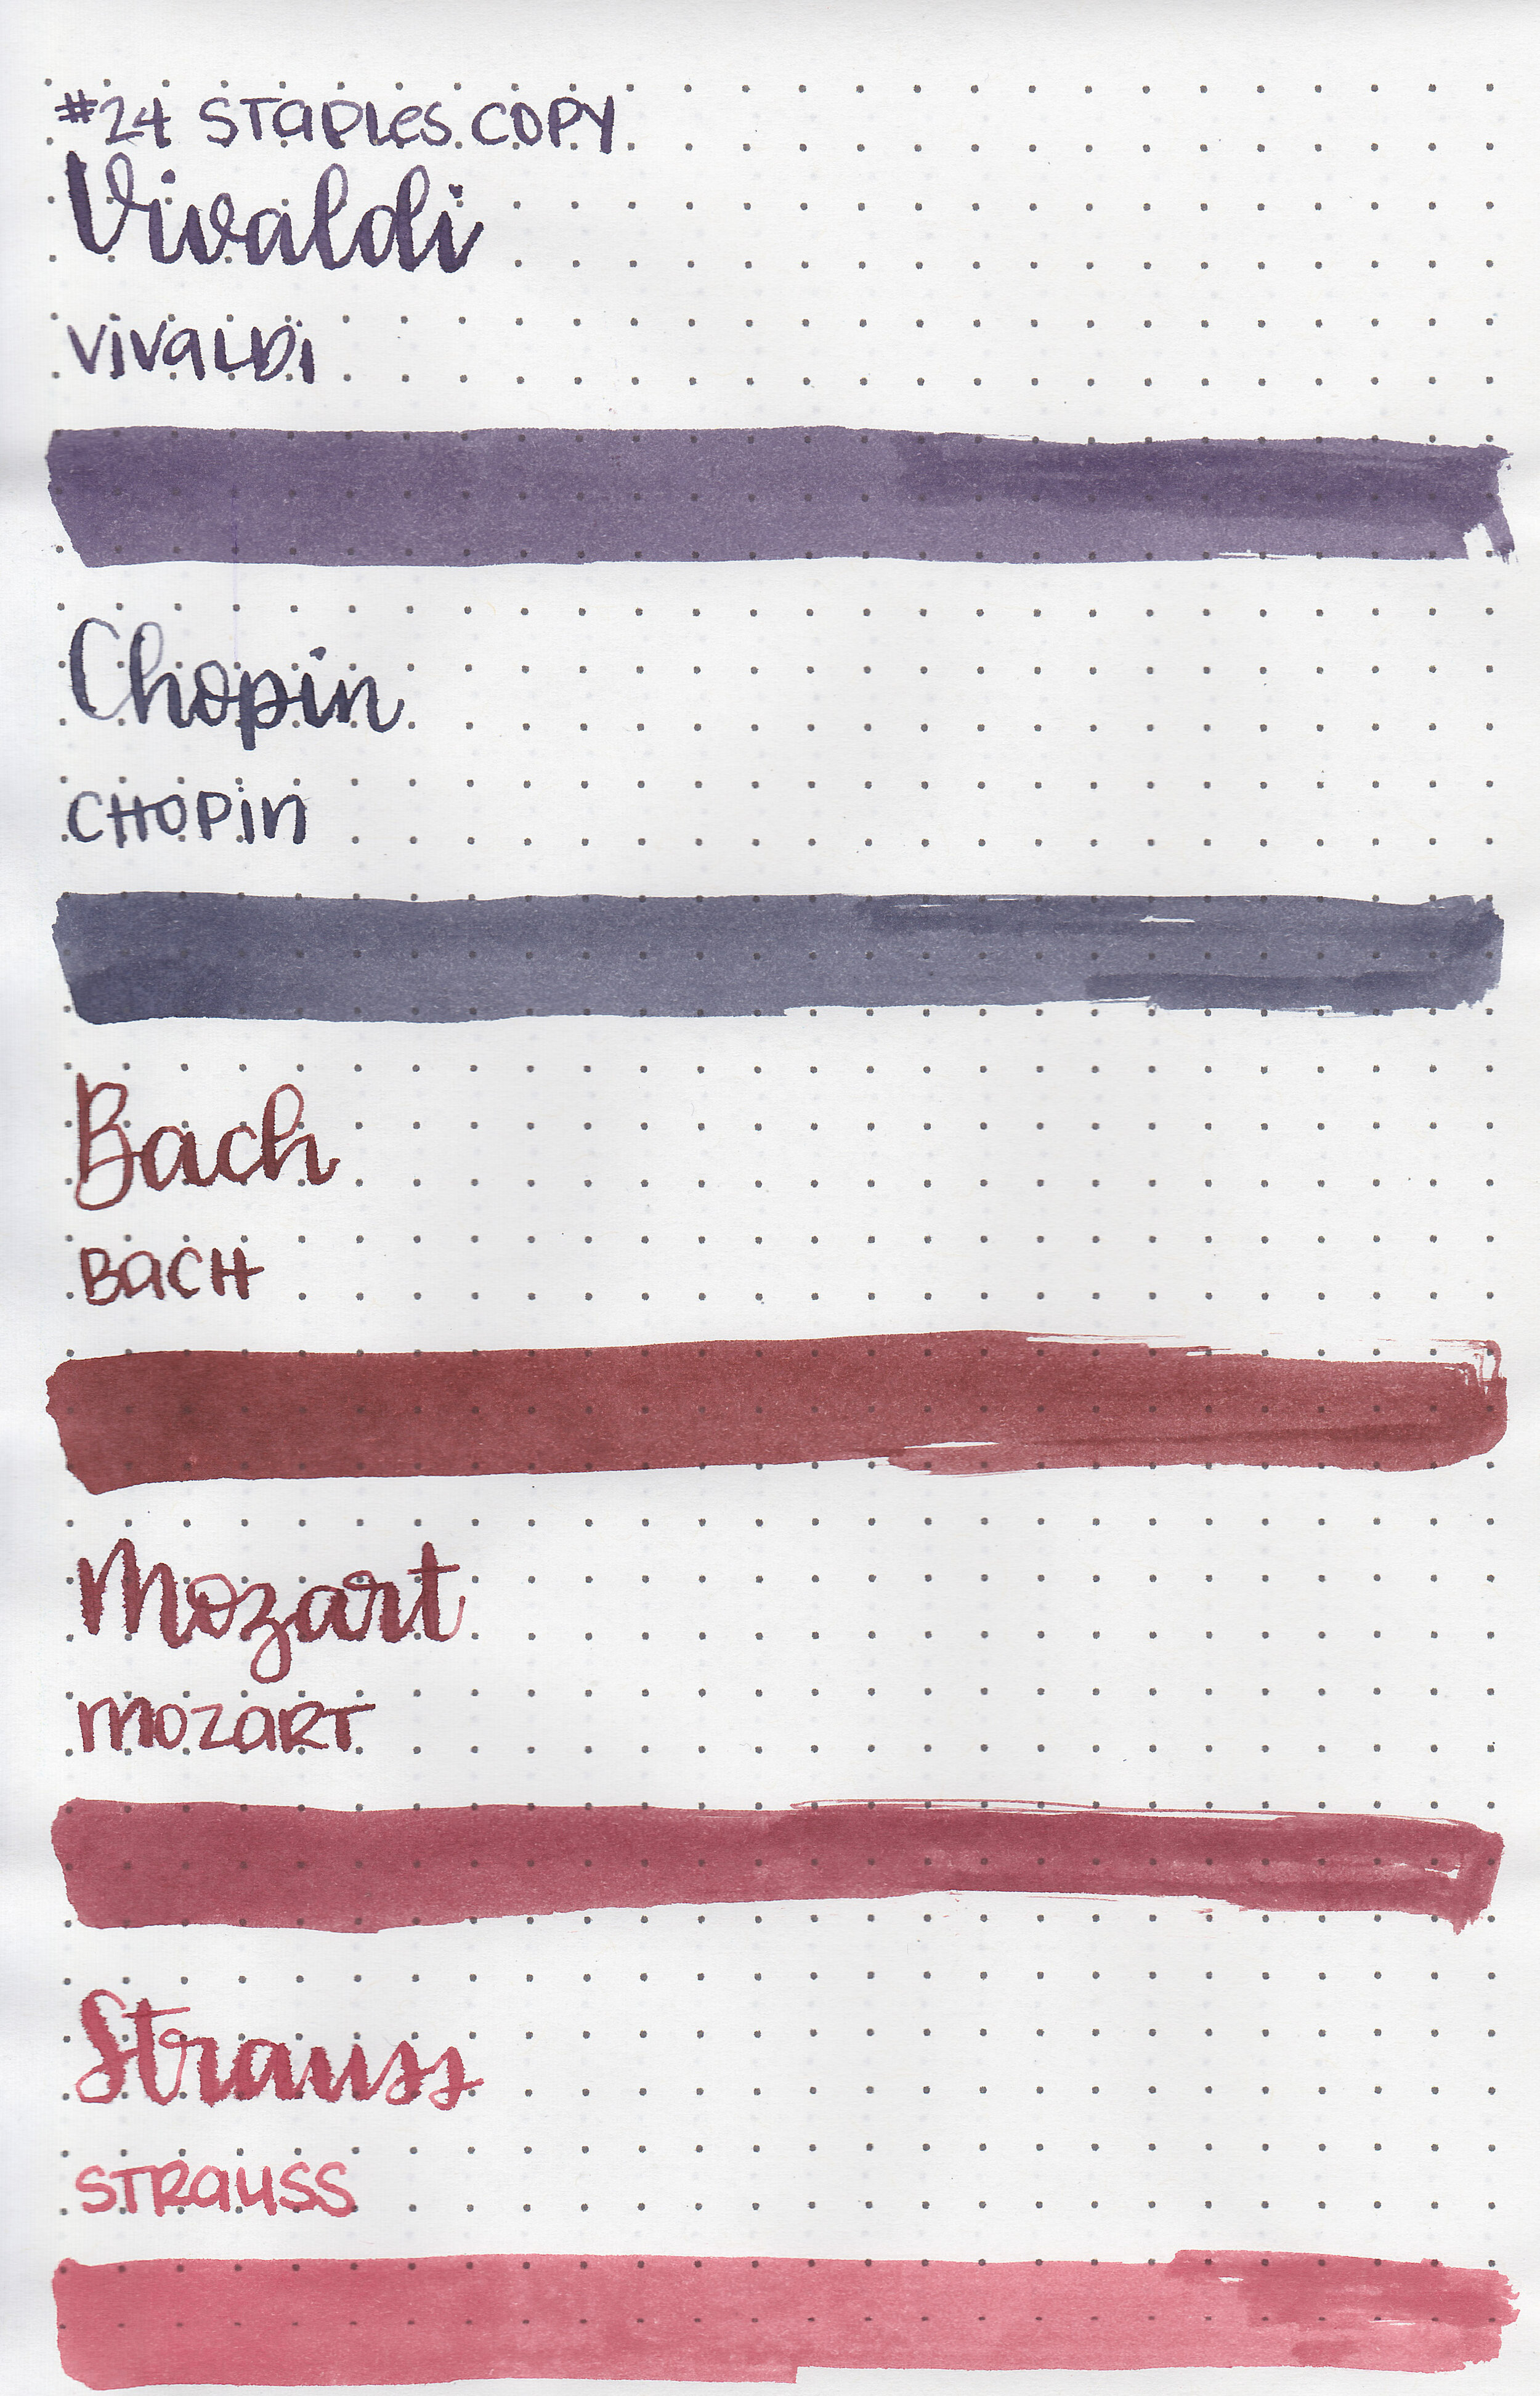 #24 STaPLes COPY
Vivaldi
ViVaLDi
Chopin
CHOPin
Bach
BaCH
Mozart
mozaRT
Strauss
STRauSS